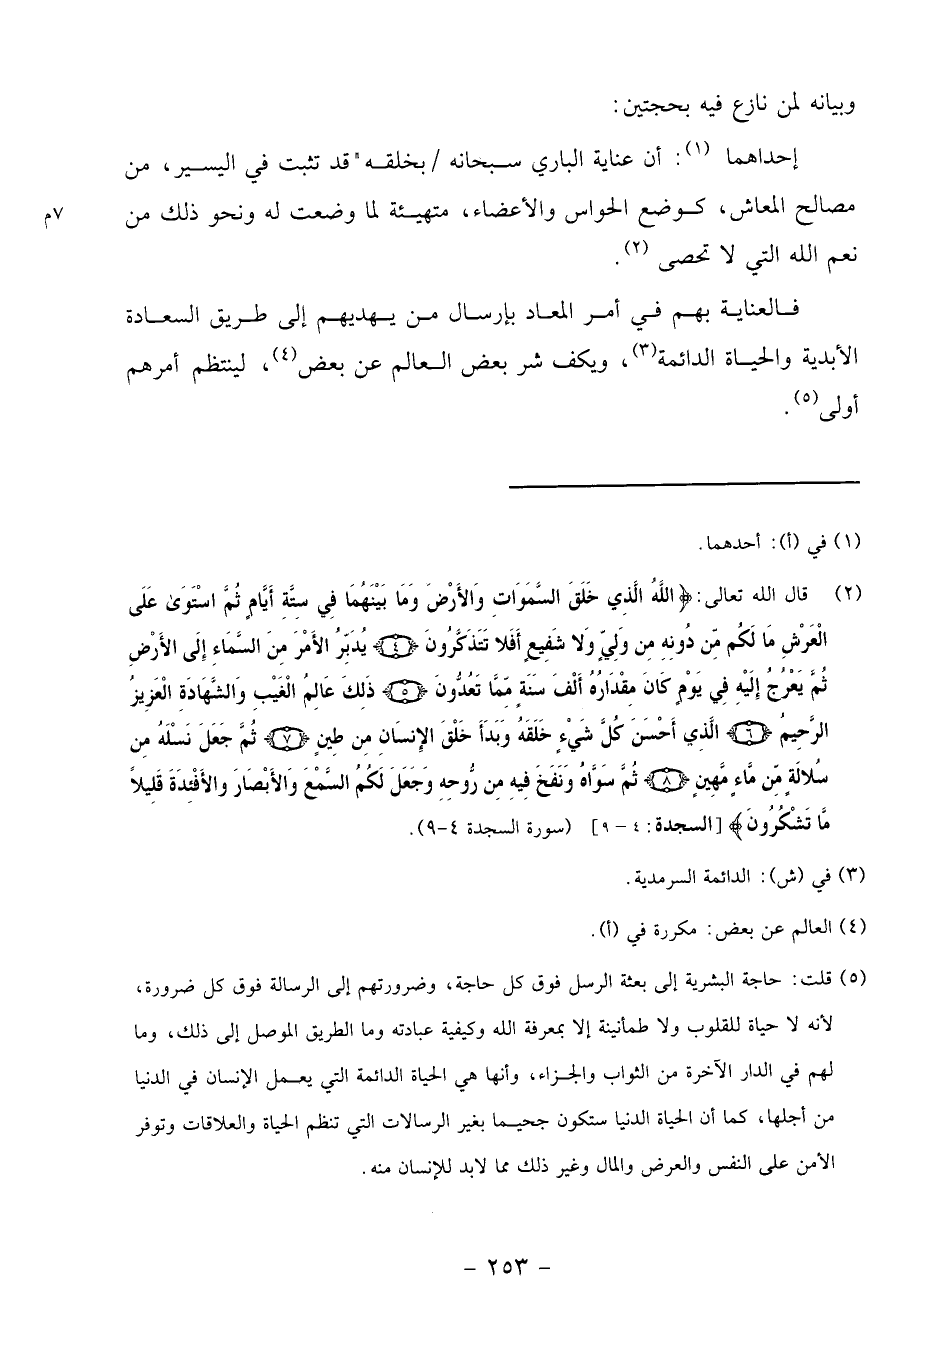 وبيانه لمن نازع فيه بحجتين:
إحداهما (١): أن عناية الباري سبحانه / بخلقه قد تثبت في اليسير، من
مصالح المعاش، كوضع الحواس والأعضاء، متهيئة لما وضعت له ونحو ذلك من
٧م
نعم الله التي لا تحصى (٢).
فالعناية بهم في أمر المعاد بإرسال من يهديهم إلى طريق السعادة
الأبدية والحياة الدائمة(٣)، ويكف شر بعض العالم عن بعض(٤)، لينتظم أمرهم
أولى(٥).
(١) في (أ): أحدهما.
(٢) قال الله تعالى: ﴿اللَّهُ الَّذي خَلَقَ السَّمَوَات وَالأَرْضَ وَمَا بَيْنَهُمَا في ستَّة أَيَّامٍ ثُمَّ اسْتَوَىٰ عَلَى
الْعَرْشِ مَا لَكُم مِّن دُونِه من وَلِيٍّ وَلا شَفيعٍ أَفَلا تَتَذَكَّرُونَ ﴿٤﴾ يُدَبِّرُ الأَمْرَ مِنَ السَّمَاء إِلَى الأَرْضِ
ثُمَّ يَعْرُجُ إِلَيْه في يَوْمٍ كَانَ مِقْدَارُهُ أَلْفَ سَنَة مِّمَّا تَعُدُّونَ ﴿٥﴾ ذَلكَ عَالِمُ الْغَيْب وَالشَّهَادَة الْعَزِيزُ
الرَّحيمُ ﴿٦﴾ الَّذي أَحْسَنَ كُلَّ شَيْءٍ خَلَقَهُ وَبَدَأَ خَلْقَ الإِنسَان من طينٍ ﴿٧﴾ ثُمَّ جَعَلَ نَسْلَهُ من
سُلالَةٍ مِّن مَّاءٍ مَّهينٍ ﴿٨﴾ ثُمَّ سَوَّاهُ وَنَفَخَ فيه من رُّوحه وَجَعَلَ لَكُمُ السَّمْعَ وَالأَبْصَارَ وَالأَفْئدَةَ قَليلاً
مَّا تَشْكُرُونَ﴾ [السجدة: ٤ – ٩] (سورة السجدة ٤-٩).
(٣) في (ش): الدائمة السرمدية.
(٤) العالم عن بعض: مكررة في (أ).
(٥) قلت: حاجة البشرية إلى بعثة الرسل فوق كل حاجة، وضرورتهم إلى الرسالة فوق كل ضرورة،
لأنه لا حياة للقلوب ولا طمأنينة إلا بمعرفة الله وكيفية عبادته وما الطريق الموصل إلى ذلك، وما
لهم في الدار الآخرة من الثواب والجزاء، وأنها هي الحياة الدائمة التي يعمل الإنسان في الدنيا
من أجلها، كما أن الحياة الدنيا ستكون جحيما بغير الرسالات التي تنظم الحياة والعلاقات وتوفر
الأمن على النفس والعرض والمال وغير ذلك مما لابد للإنسان منه.
– ٢٥٣ –